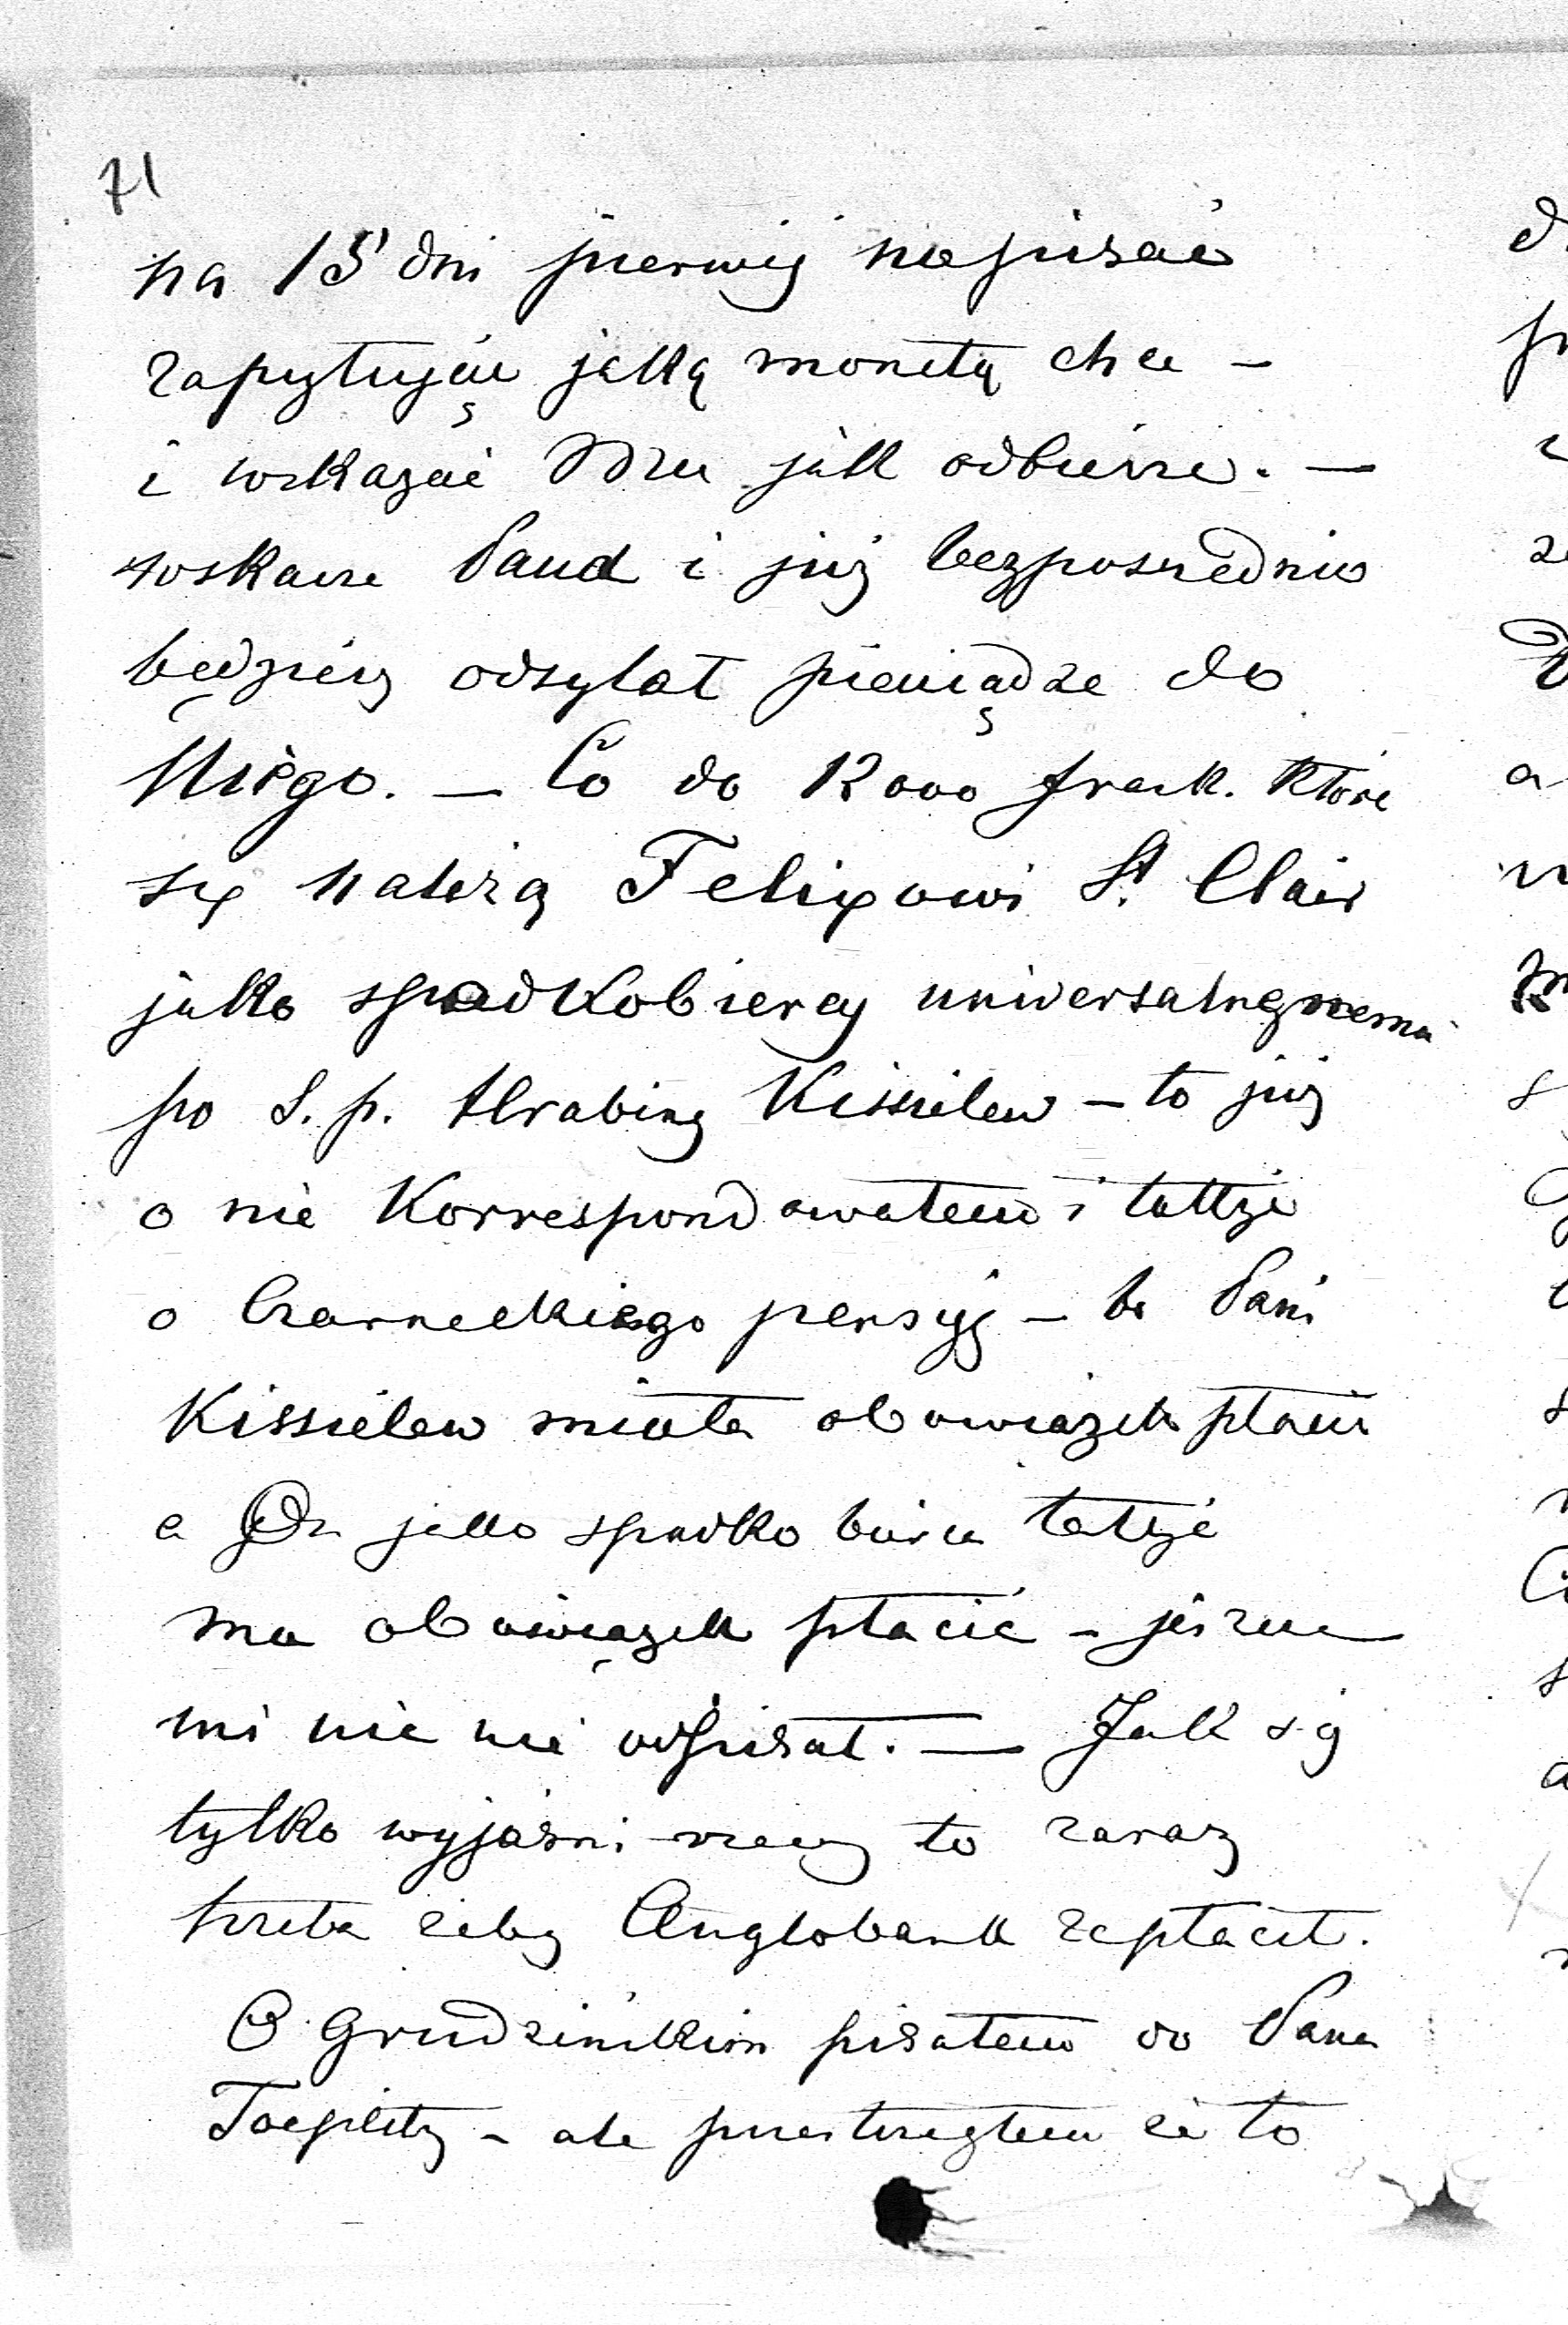 71
na 15 dni pierwiej napisać
zapytując jaką monetą chce —
i wskazać Mu jak odbierze. —
wskaże Panu i już bezpośrednio
będziesz odsyłał pieniądze do
Niego. — Co do 12000 frank. które
się należą Felixowi St. Clair
jako spadkobiercy uniwersalnemu
po S. p. Hrabiny Kisselew — to już
o nie Korrespondowałem i także
o Czarneckiego pensyą — bo Pani
Kissielew miała obowiązek płacić
a On jako spadkobierca także
ma obowiązek płacić — jeszcze
mi nic nie odpisał. — Jak się
tylko wyjaśni rzecz to zaraz
trzeba żeby Anglobank zapłacił.
O Grudzińskim pisałem do Pana
Toeplitz — ale postrzegłem że to